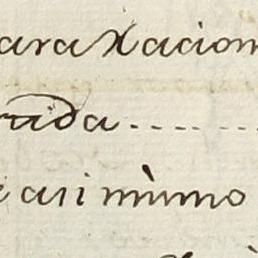 araXacion
rada......
e asi mismo